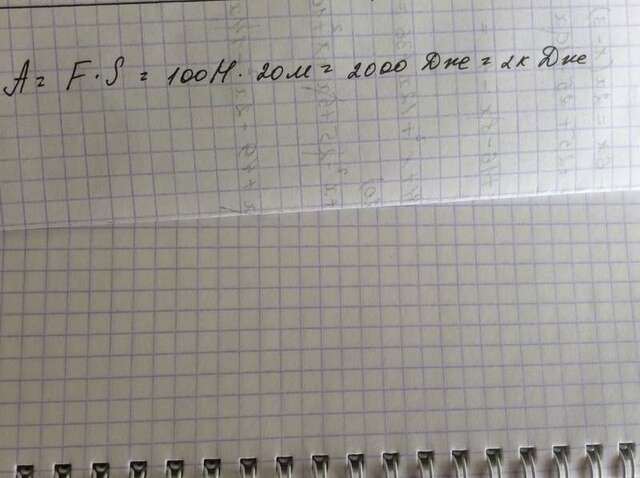 A = F · S = 100Н · 20м = 2000 Дже = 2к Дже